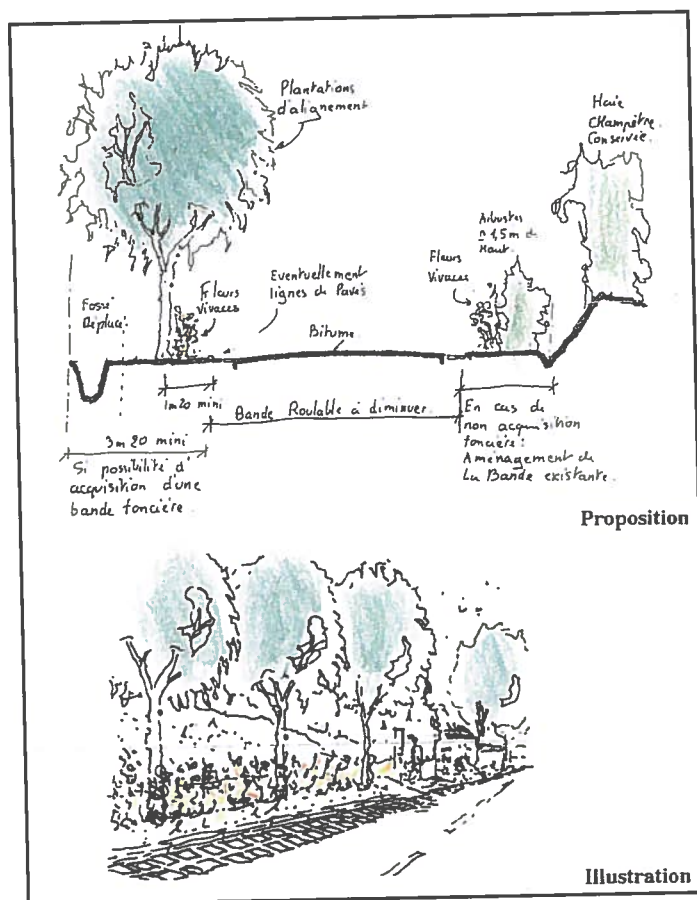 Plantations
d'alignement
Haie
Champêtre
Conservée.
Arbustes
1,5m de
Haut
Fleurs
Vivaces
Eventuellement
lignes de Pavés
Fleurs
Vivaces
Fossé
Déplacé.
Bitume
1m20 mini
Bande Roulable à diminuer.
3m20 mini
Si possibilité d'
acquisition d'une
bande foncière.
En cas de
non acquisition
foncière:
Aménagement de
La Bande existante.
Proposition
Illustration